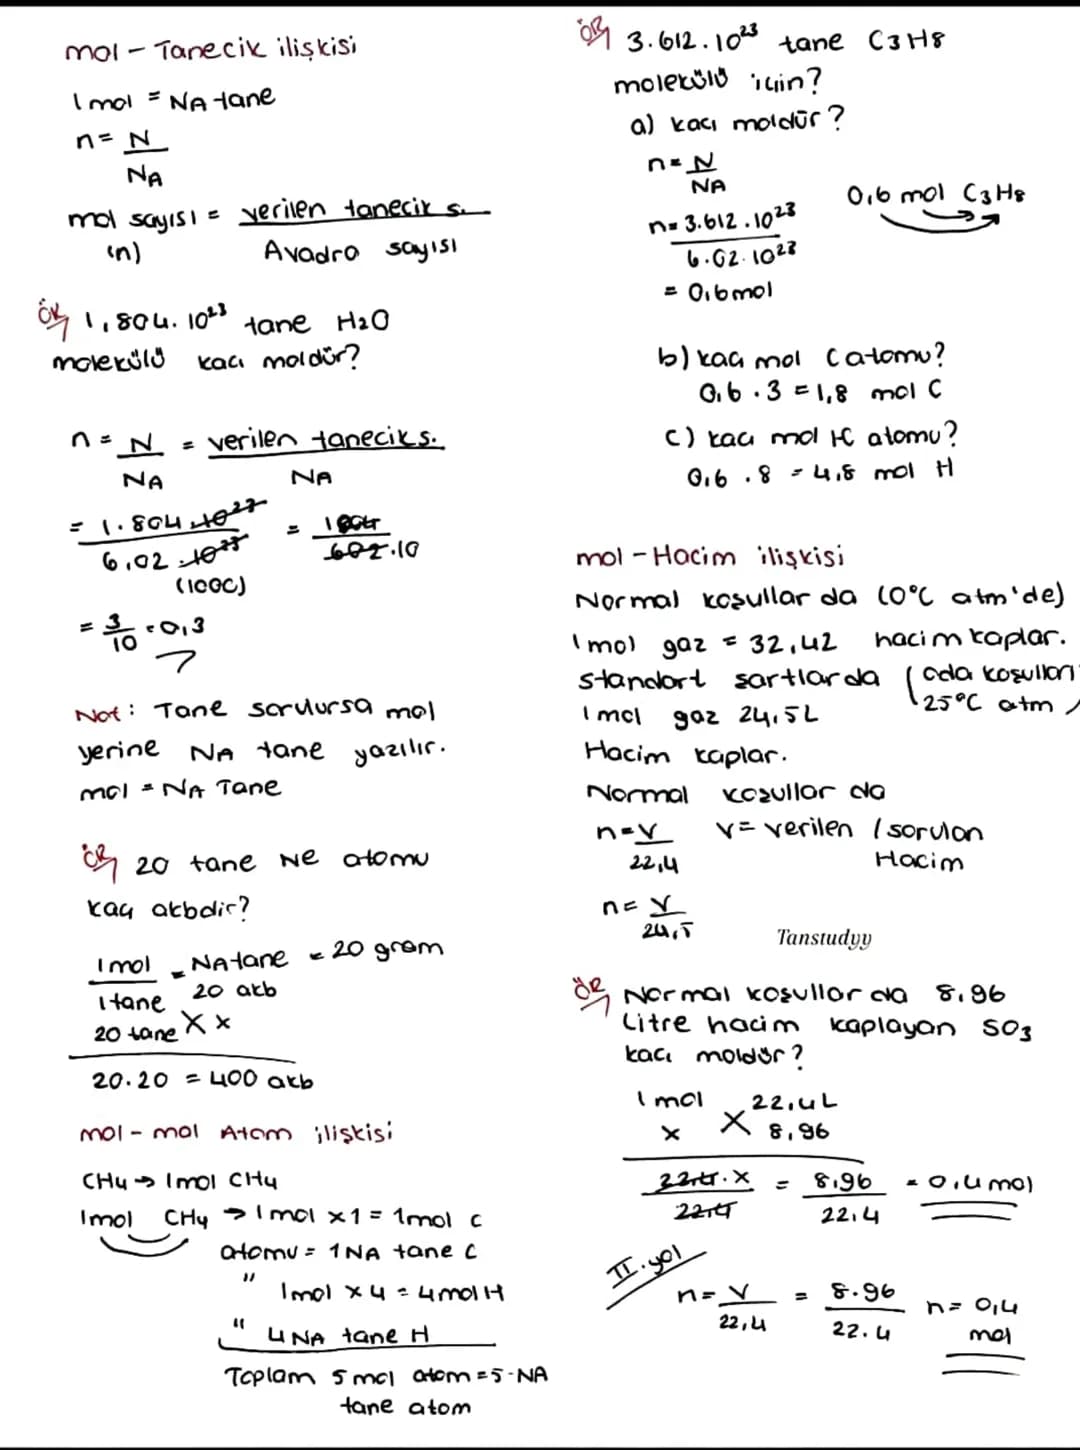 mol - Tanecik ilişkisi
1 mol = NA tane
n = N
NA
mol sayısı = verilen tanecik s.
(n) Avadro sayısı
ÖR 1,804.10²³ tane H₂O
molekülü kaçı moldür?
n = N = verilen tanecik s.
NA NA
= 1.804.10²³ = 1804
6,02.10²³ 602.10
(1000)
= 3/10 = 0,3
Not: Tane sorulursa mol
yerine NA tane yazılır.
mol = NA Tane
ÖR 20 tane Ne atomu
kaç akbdir?
1 mol = NA tane = 20 gram
1 tane 20 akb
20 tane X x
20.20 = 400 akb
mol - mol Atom ilişkisi
CH4 → 1mol CH4
1mol CH4 → 1mol x1 = 1mol C
atomu = 1NA tane C
" 1mol x 4 = 4mol H
" 4NA tane H
Toplam 5 mol atom = 5.NA
tane atom
ÖR 3.612.10²³ tane C3H8
molekülü için?
a) kaçı moldür?
n = N
NA
0,6 mol C3H8
n = 3.612.10²³
6.02.10²³
= 0,6mol
b) kaç mol C atomu?
0,6.3 = 1,8 mol C
c) kaçı mol H atomu?
0,6.8 = 4,8 mol H
mol - Hacim ilişkisi
Normal koşullar da (0°C atm'de)
1mol gaz = 32,42 hacim kaplar.
standart şartlarda (oda koşulları
1mol gaz 24,5L 25°C atm)
Hacim kaplar.
Normal koşullar da
n = V V = verilen / sorulan
22,4 Hacim
n = V
24,5
Tanstudyy
ÖR Normal koşullar da 8,96
Litre hacim kaplayan SO3
kaçı moldür?
1 mol 22,4L
x X 8,96
22,4.x = 8,96 = 0,4 mol
22,4 22,4
II. yol
n = V = 8.96 n = 0,4
22,4 22.4 mol